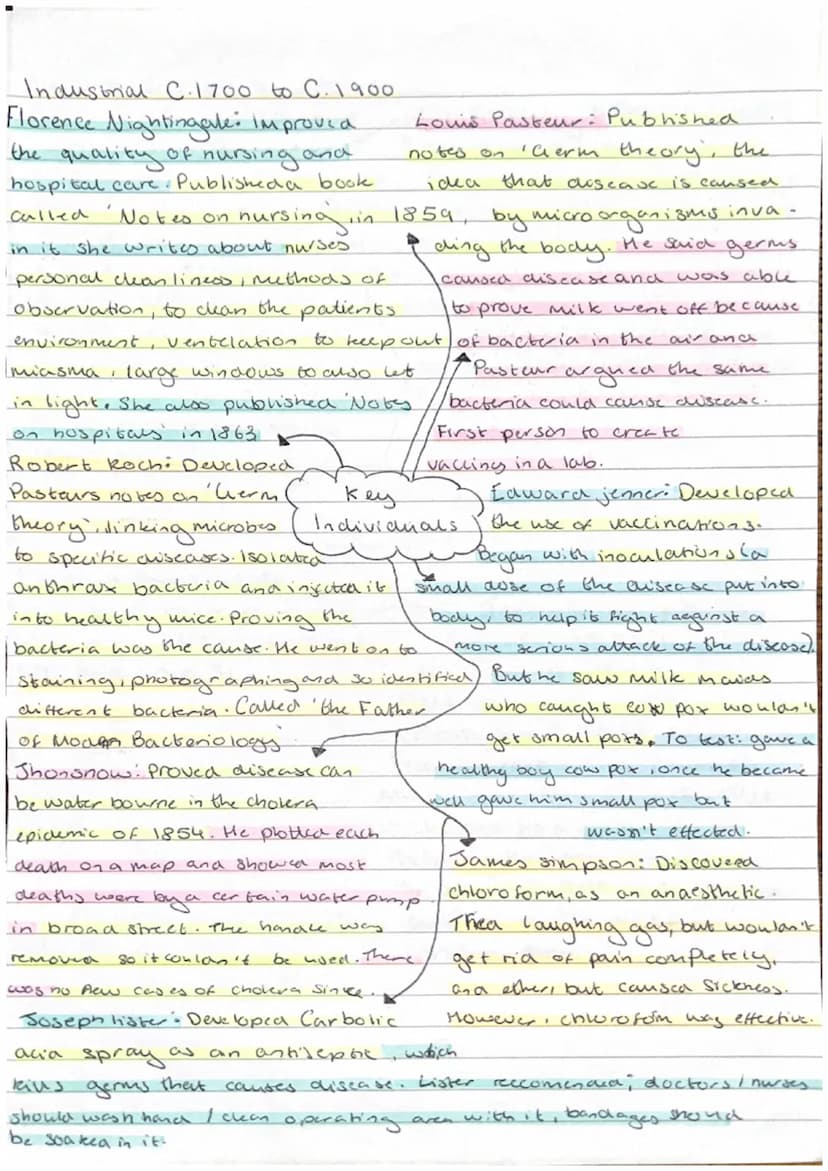 Industrial C.1700 to C.1900
Florence Nightingale: Improved
the quality of nursing and
hospital care. Published a book
called 'Notes on nursing', in 1859,
in it she writes about nurses
personal cleanliness, methods of
observation, to clean the patients
environment, ventelation to keep out
miasma, large windows to also let
in light. She also published 'Notes
on hospitals' in 1863
Robert Koch: Developed
Pasteurs notes on 'Germ
theory', linking microbes
to specific diseases. Isolated
anthrax bacteria and injected it
into healthy mice. Proving the
bacteria was the cause. He went on to
staining, photographing and so identified
different bacteria. Called 'the Father
of Modern Bacteriology'
Jhonsnow: Proved disease can
be water bourne in the cholera
epidemic of 1854. He plotted each
death on a map and showed most
deaths were by a certain water pump
in broad street. The handle was
removed so it couldn't be used. There
was no new cases of cholera since.
Joseph lister: Developed Carbolic
acid spray as an antiseptic, which
kills germs that causes disease. Lister reccomended; doctors/nurses
should wash hand / clean operating area with it, bandages should
be soaked in it.
Key
Individuals
Louis Pasteur: Published
notes on 'Germ theory', the
idea that disease is caused
by microorganisms inva-
ding the body. He said germs
caused disease and was able
to prove milk went off because
of bacteria in the air and
Pasteur argued the same
bacteria could cause disease.
First person to create
vaccing in a lab.
Edward jenner: Developed
the use of vaccinations.
Began with inoculations (a
small dose of the disease put into
body, to help it fight against a
more serious attack of the disease).
But he saw milk maids
who caught cow pox wouldn't
get small poxs. To test: gave a
healthy boy cow pox, once he became
well gave him small pox but
wasn't effected.
James simpson: Discovered
chloroform, as an anaesthetic.
Tried laughing gas, but wouldn't
get rid of pain completely,
and ether, but caused sickness.
However, chloroform was effective.